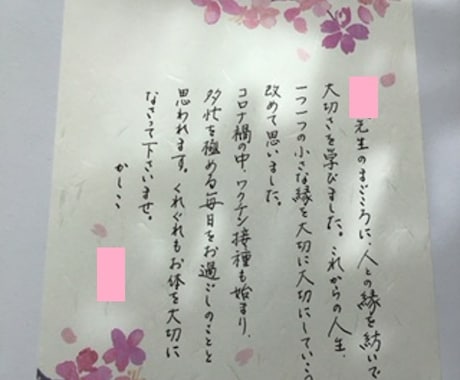 先生のまごころに、人との縁を紡いで
大切さを学びました。これからの人生、
一つ一つの小さな縁を大切に大切にしていこう
改めて思いました。
コロナ禍の中、ワクチン接種も始まり、
多忙を極める毎日をお過ごしのことと
思われます。くれぐれもお体を大切に
なさって下さいませ。
かしこ